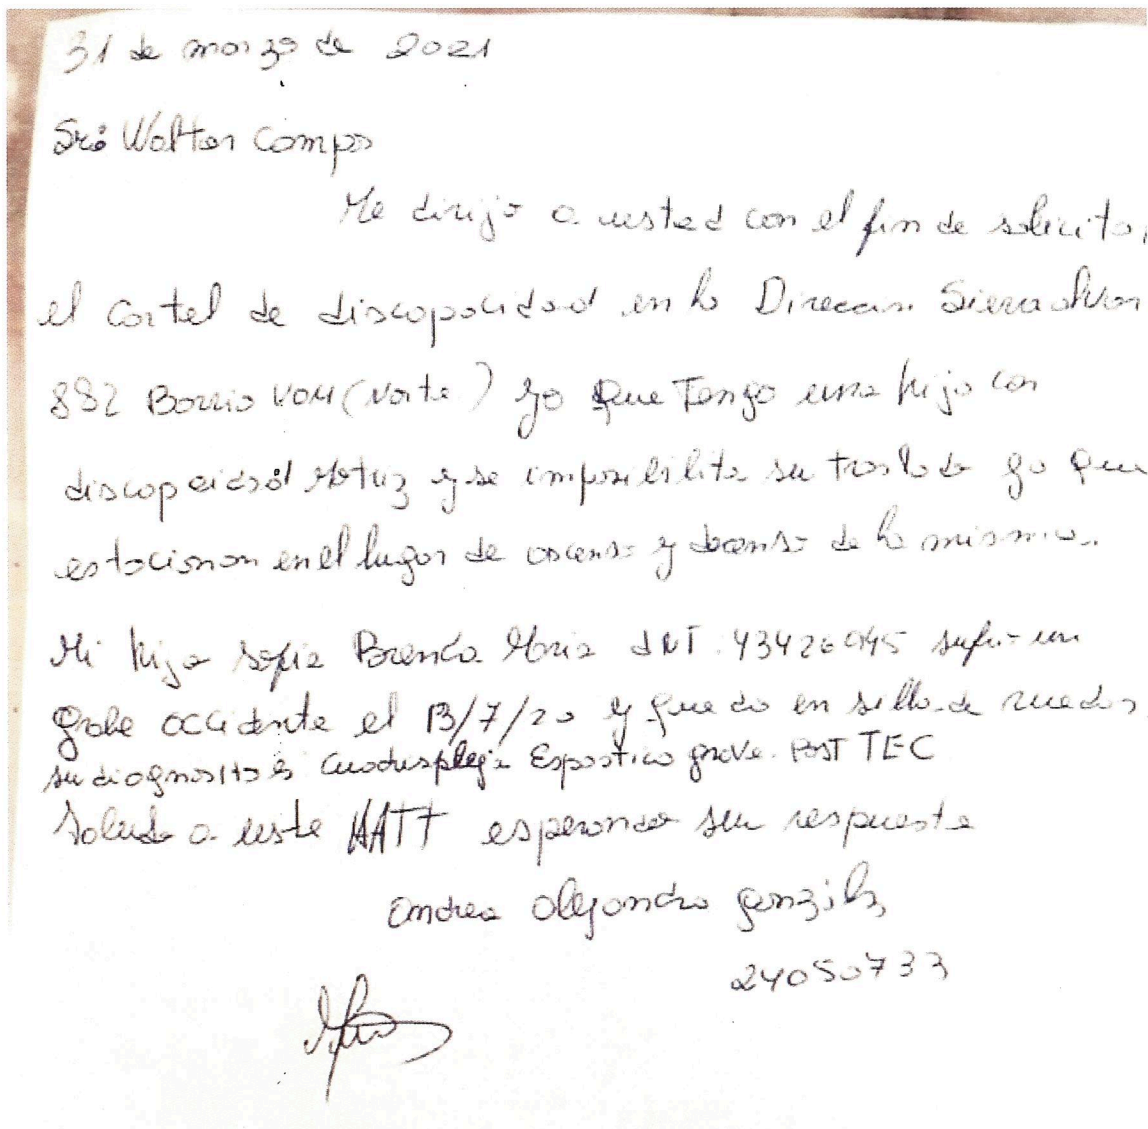 31 de marzo de 2021
Sr: Walter Campo
Me dirijo a usted con el fin de solicitar
el cartel de discapacidad en la Direccn. Sierra
882 Barrio VOM (Norte) ya que Tengo una hija con
discapcidad Motriz y se imposibilita su traslado ya que
estacionan en el lugar de ascenso y desenso de la misma.
Mi hija Sofia Brenda Maria DNI 43426945 sufrio un
grabe accidente el 13/7/20 y quedo en silla de ruedas
su diagnostico es Cuadresplejia Espastica grave. Post TEC
Saludo a uste ATT esperando su respuesta
Andrea Alejandra Gonzalez
24050733